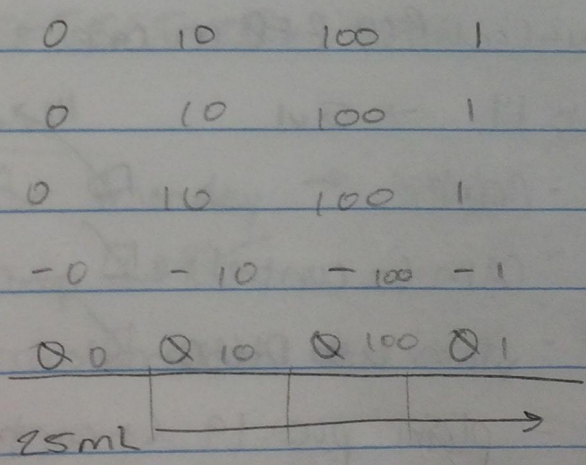 0 10 100 1
0 10 100 1
0 10 100 1
- 0 - 10 - 100 - 1
Q 0 Q 10 Q 100 Q 1
25mL